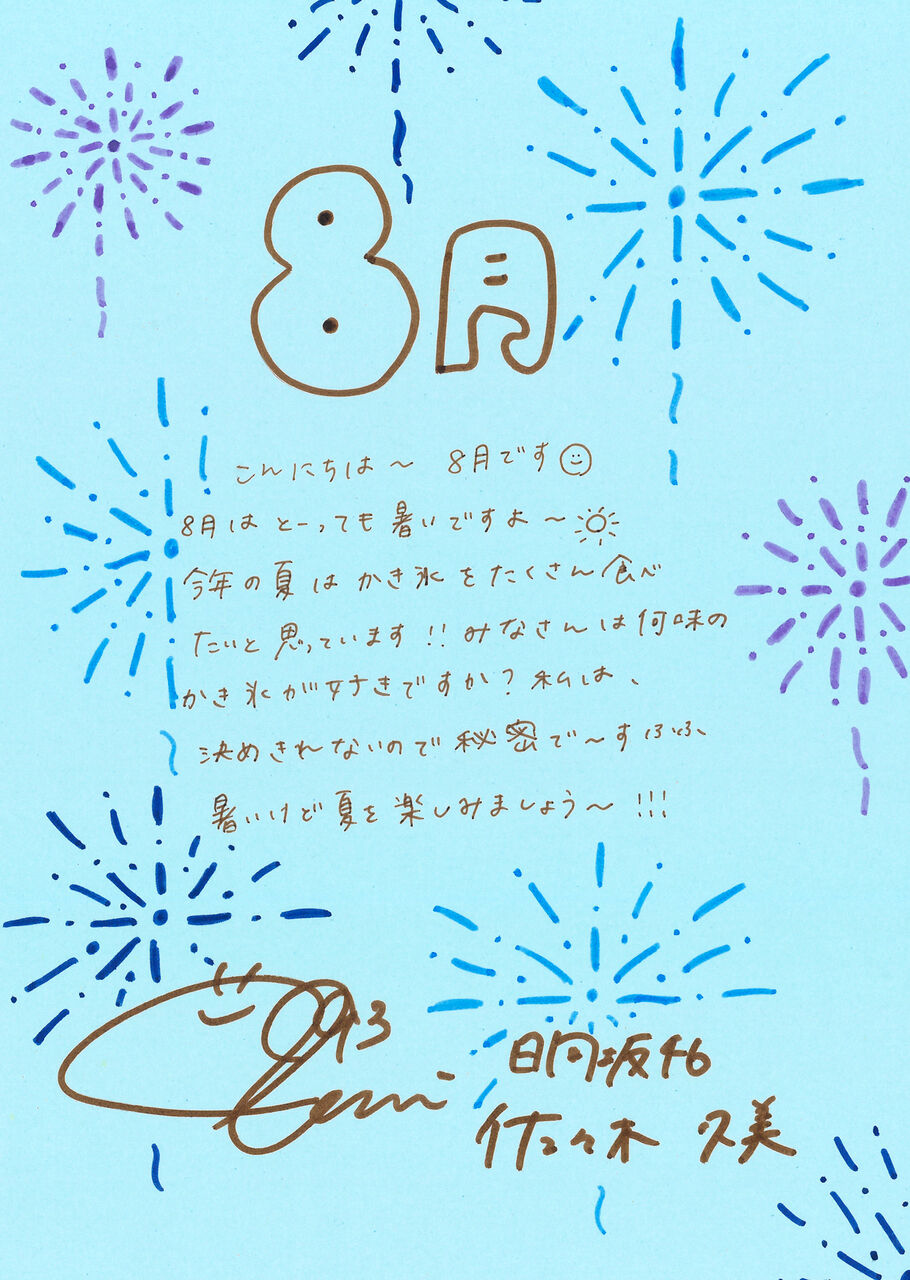 8月
こんにちは〜 8月です
8月は とーっても 暑いですよ〜
今年の夏は かき氷をたくさん食べ
たいと思っています!! みなさんは何味の
かき氷が好きですか? 私は、
決めきれないので秘密で〜す ふふ、
暑いけど夏を楽しみましょう〜!!!
日向坂46
佐々木 久美